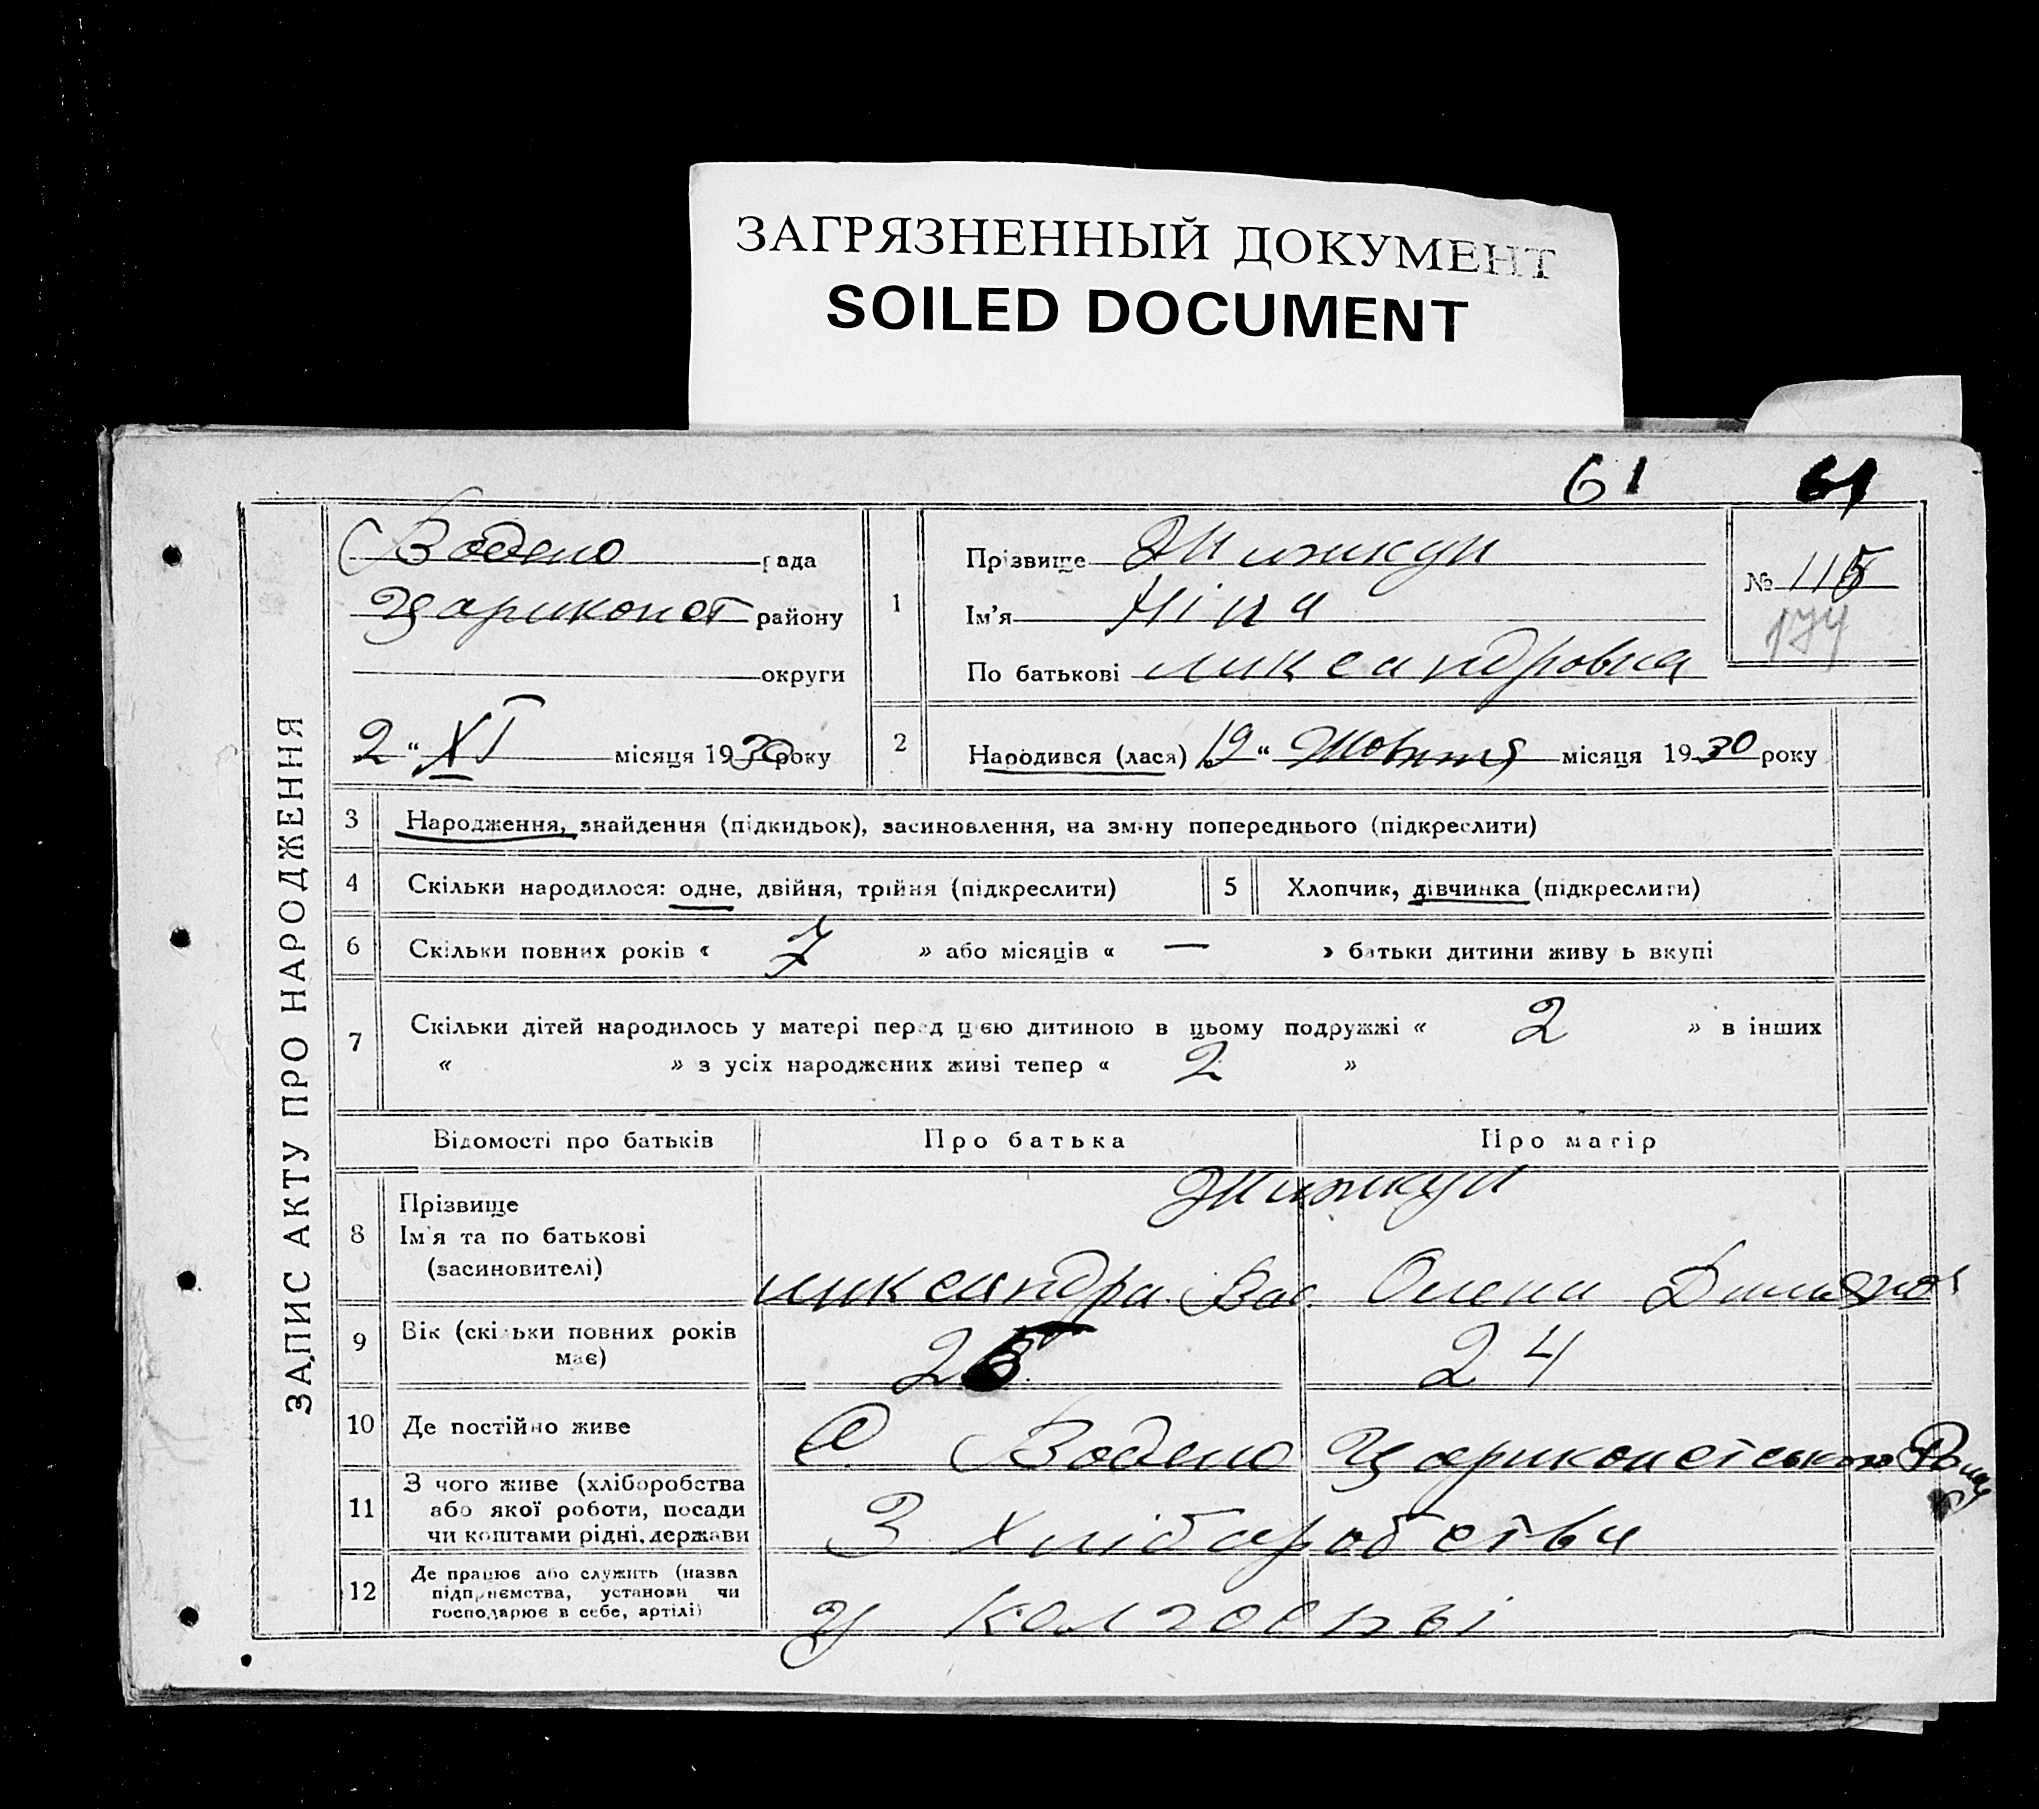 ЗАГРЯЗНЕННЫЙ ДОКУМЕНТ
SOILED DOCUMENT
61 61
ЗАПИС АКТУ ПРО НАРОДЖЕННЯ
Водено рада
Цариконст району
округи
2 " XI місяця 1930 року
1
Прізвище
Ім'я Ніна
По батькові лександровна
№ 115
174
2 Народився (лася) 19 " Жовтня місяця 1930 року
3 Народження, знайдення (підкидьок), засиновлення, на зміну попереднього (підкреслити)
4 Скільки народилося: одне, двійня, трійня (підкреслити) 5 Хлопчик, дівчинка (підкреслити)
6 Скільки повних років « 7 » або місяців « — » батьки дитини живуть вкупі
7 Скільки дітей народилось у матері перед цією дитиною в цьому подружжі « 2 » в інших
« » з усіх народжених живі тепер « 2 »
Відомості про батьків Про батька Про матір
8 Прізвище
Ім'я та по батькові
(засиновителі) лександра Вас. Олена
9 Вік (скільки повних років має) 25 24
10 Де постійно живе С Водено Цариконстського
11 З чого живе (хліборобства
або якої роботи, посади
чи коштами рідні, держави З хліборобства
12 Де працює або служить (назва
підприємства, установи чи
господарює в себе, артілі) У колгоспі